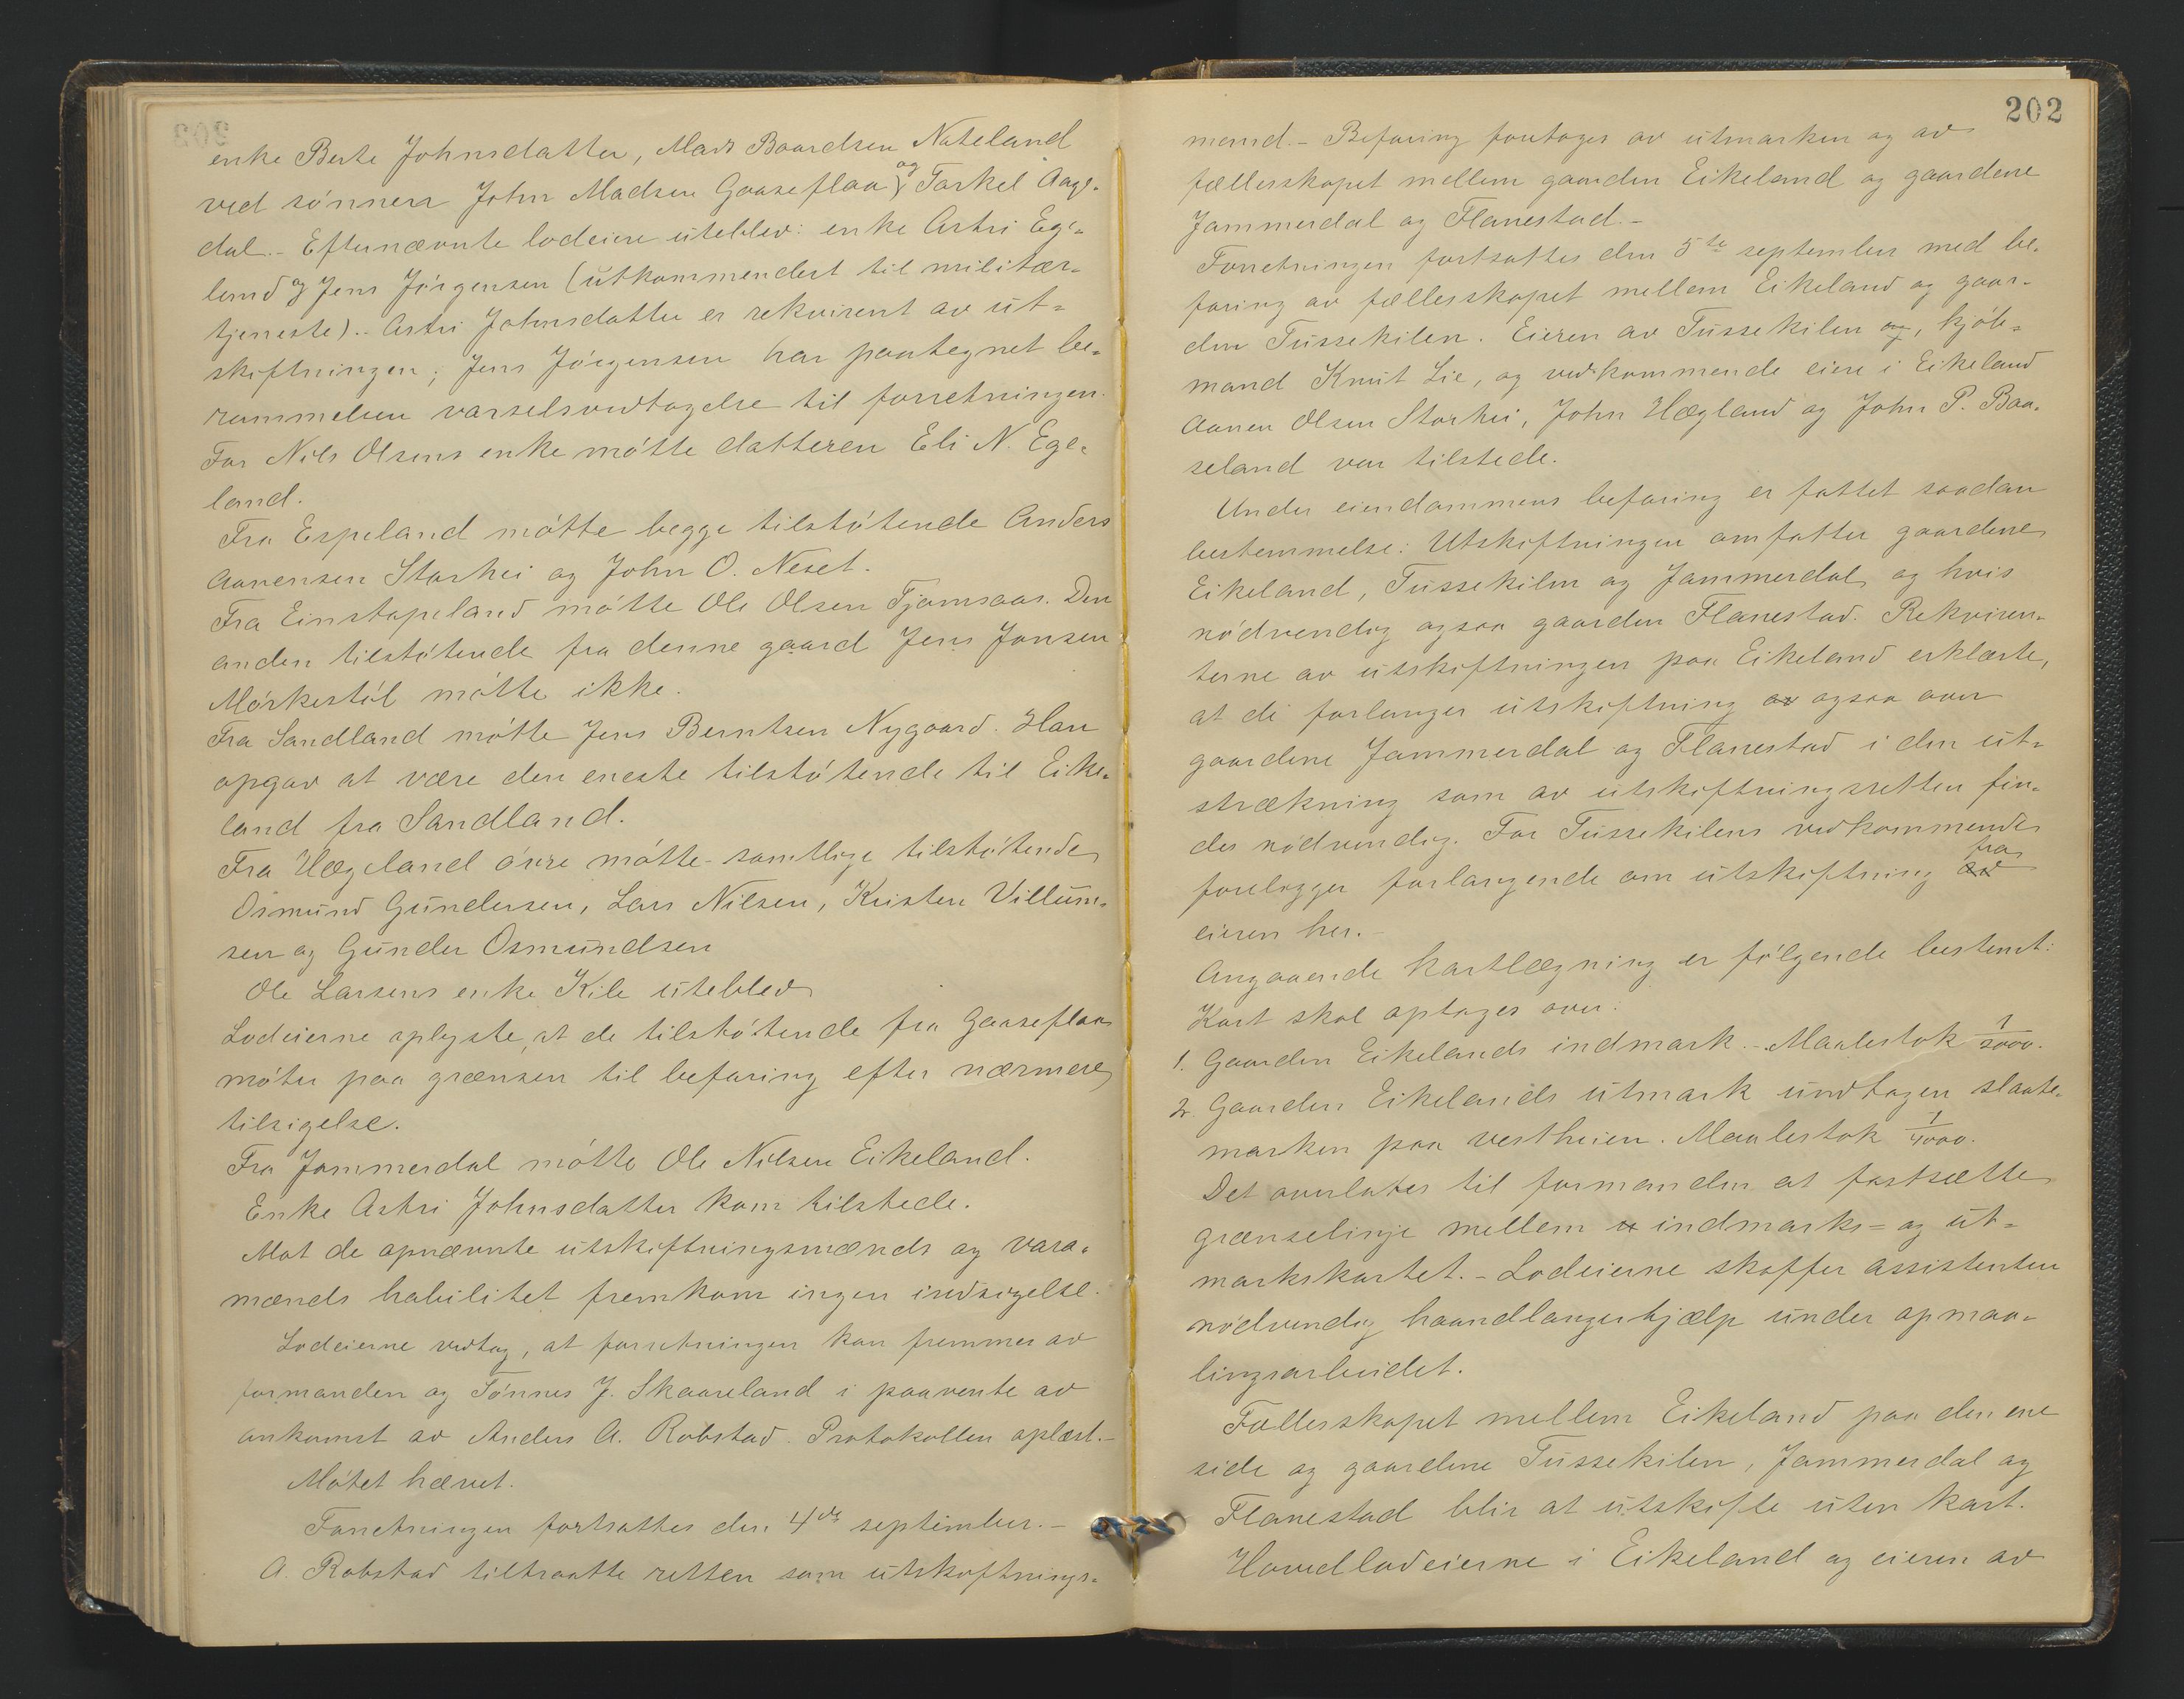 enke Berte Johnsdatter, Mads Baardsen Nateland
ved sönnen John Madsen Gaaseflaa og Tarkel Aage-
dal.- Efternævnte lodeiere uteblev: enke Astri Ege-
land og Jens Jörgensen (utkommandert til militær-
tjeneste).- Astri Johnsdatter er rekvirent av ut-
skiftningen; Jens Jörgensen har paategnet be-
rammelsen varselsvedtagelse til forretningen.
For Nils Olsens enke mötte datteren Eli N. Ege-
land.
Fra Espeland mötte begge tilstötende Anders
Aanensen Storhei og John O. Neset.
Fra Einstapeland mötte Ole Olsen Tjomsaas. Den
anden tilstötende fra denne gaard Jens Jonsen
Mörkestöl mötte ikke.
Fra Sandland mötte Jens Berntsen Nygaard. Han
opgav at være den eneste tilstötende til Eike-
land fra Sandland.
Fra Hægeland övre mötte samtlige tilstötende
Osmund Gundersen, Lars Nilsen, Kristen Villum-
sen og Gunder Osmundsen
Ole Larsens enke Kile uteblev
Lodeierne oplyste, at de tilstötende fra Gaaseflaa
möter paa grænsen til befaring efter nærmere
tilsigelse.
Fra Jammerdal mötte Ole Nilsen Eikeland.
Enke Astri Johnsdatter kom tilstede.
Mot de opnævnte utskiftningsmænds og vara-
mænds habilitet fremkom ingen indsigelse.
Lodeierne vedtog, at forretningen kan fremmes av
formanden og Tönnes J. Skaareland i paavente av
ankomst av Anders A. Robstad. Protokollen oplæst.-
Mötet hævet.
Forretningen fortsattes den 4de september.-
A. Robstad tiltraatte retten som utskiftnings-
202
mand.- Befaring foretages av utmarken og av
fællesskapet mellem gaarden Eikeland og gaardene
Jammerdal og Flanestad.-
Forretningen fortsattes den 5te september med be-
faring av fællesskapet mellem Eikeland og gaar-
den Tussekilen. Eieren av Tussekilen og, kjöb-
mand Knut Lie, og vedkommende eiere i Eikeland
Aanen Olsen Storhei, John Hægland og John P. Baa-
seland var tilstede.
Under eiendommens befaring er fattet saadan
bestemmelse: Utskiftningen omfatter gaardene
Eikeland, Tussekilen og Jammerdal, og hvis
nödvendig ogsaa gaarden Flanestad. Rekviren-
terne av utskiftningen paa Eikeland erklærte,
at de forlanger utskiftning av ogsaa over
gaardene Jammerdal og Flanestad i den ut-
strækning som av utskiftningsretten fin-
des nödvendig. For Tussekilens vedkommende
foreligger forlangende om utskiftning av fra
eieren her.-
Angaaende kartlægning er fölgende bestemt:
Kart skal optages over:
1. Gaarden Eikelands indmark.- Maalestok 1/2000.
2. Gaarden Eikelands utmark undtagen slaatte-
marken paa vestheien. Maalestok 1/4000.
Det overlates til formanden at fastsætte
grænselinje mellem u indmarks= og ut-
markskartet.- Lodeierne skaffer assistenten
nödvendig haandlangerhjælp under opmaa-
lingsarbeidet.
Fællesskapet mellem Eikeland paa den ene
side og gaardene Tussekilen, Jammerdal og
Flanestad blir at utskifte uten kart.
Hovedlodeierne i Eikeland og eieren av